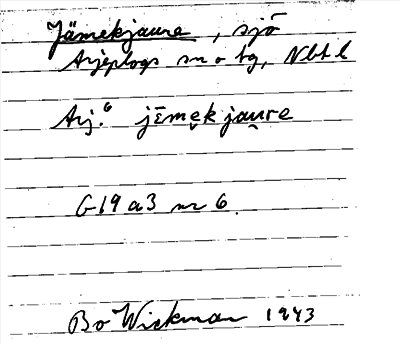 Jämekjaure, sjö
Arjeplogs sn o tg, Nbt l
Arj.⁶ jēmękjau̯re
G19 a3 nr 6.
Bo Wickman 1943